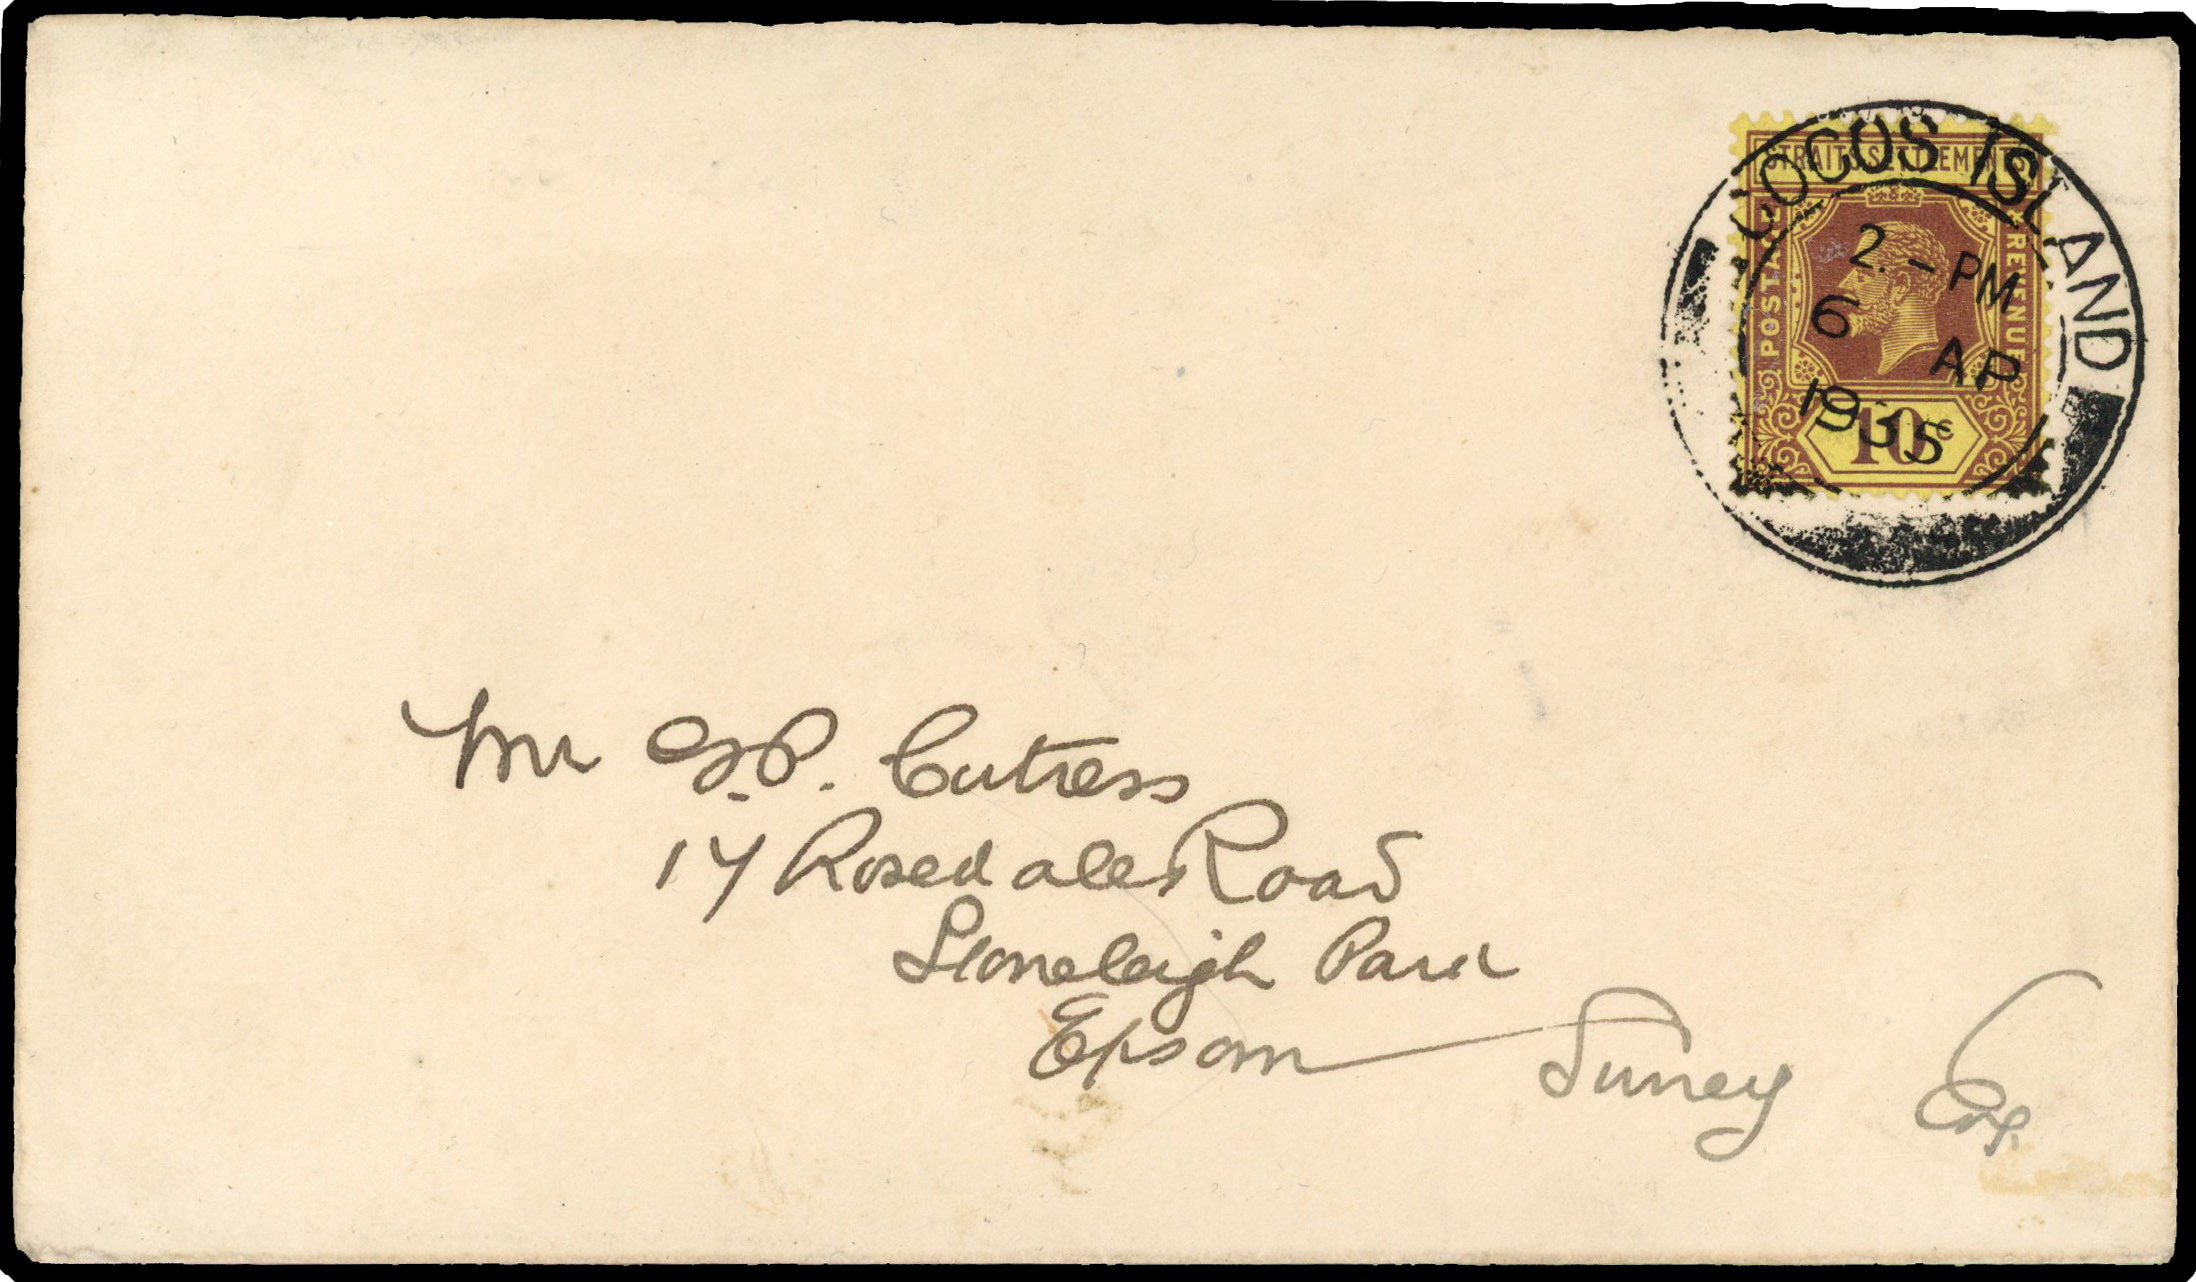 STRAITS SETTLEMENTS
POSTAGE
REVENUE
10c
COCOS ISLAND
2.-PM
6 AP
1935
Mr G.P. Cutress
17 Rosedale Road
Stoneleigh Park
Epsom Surrey